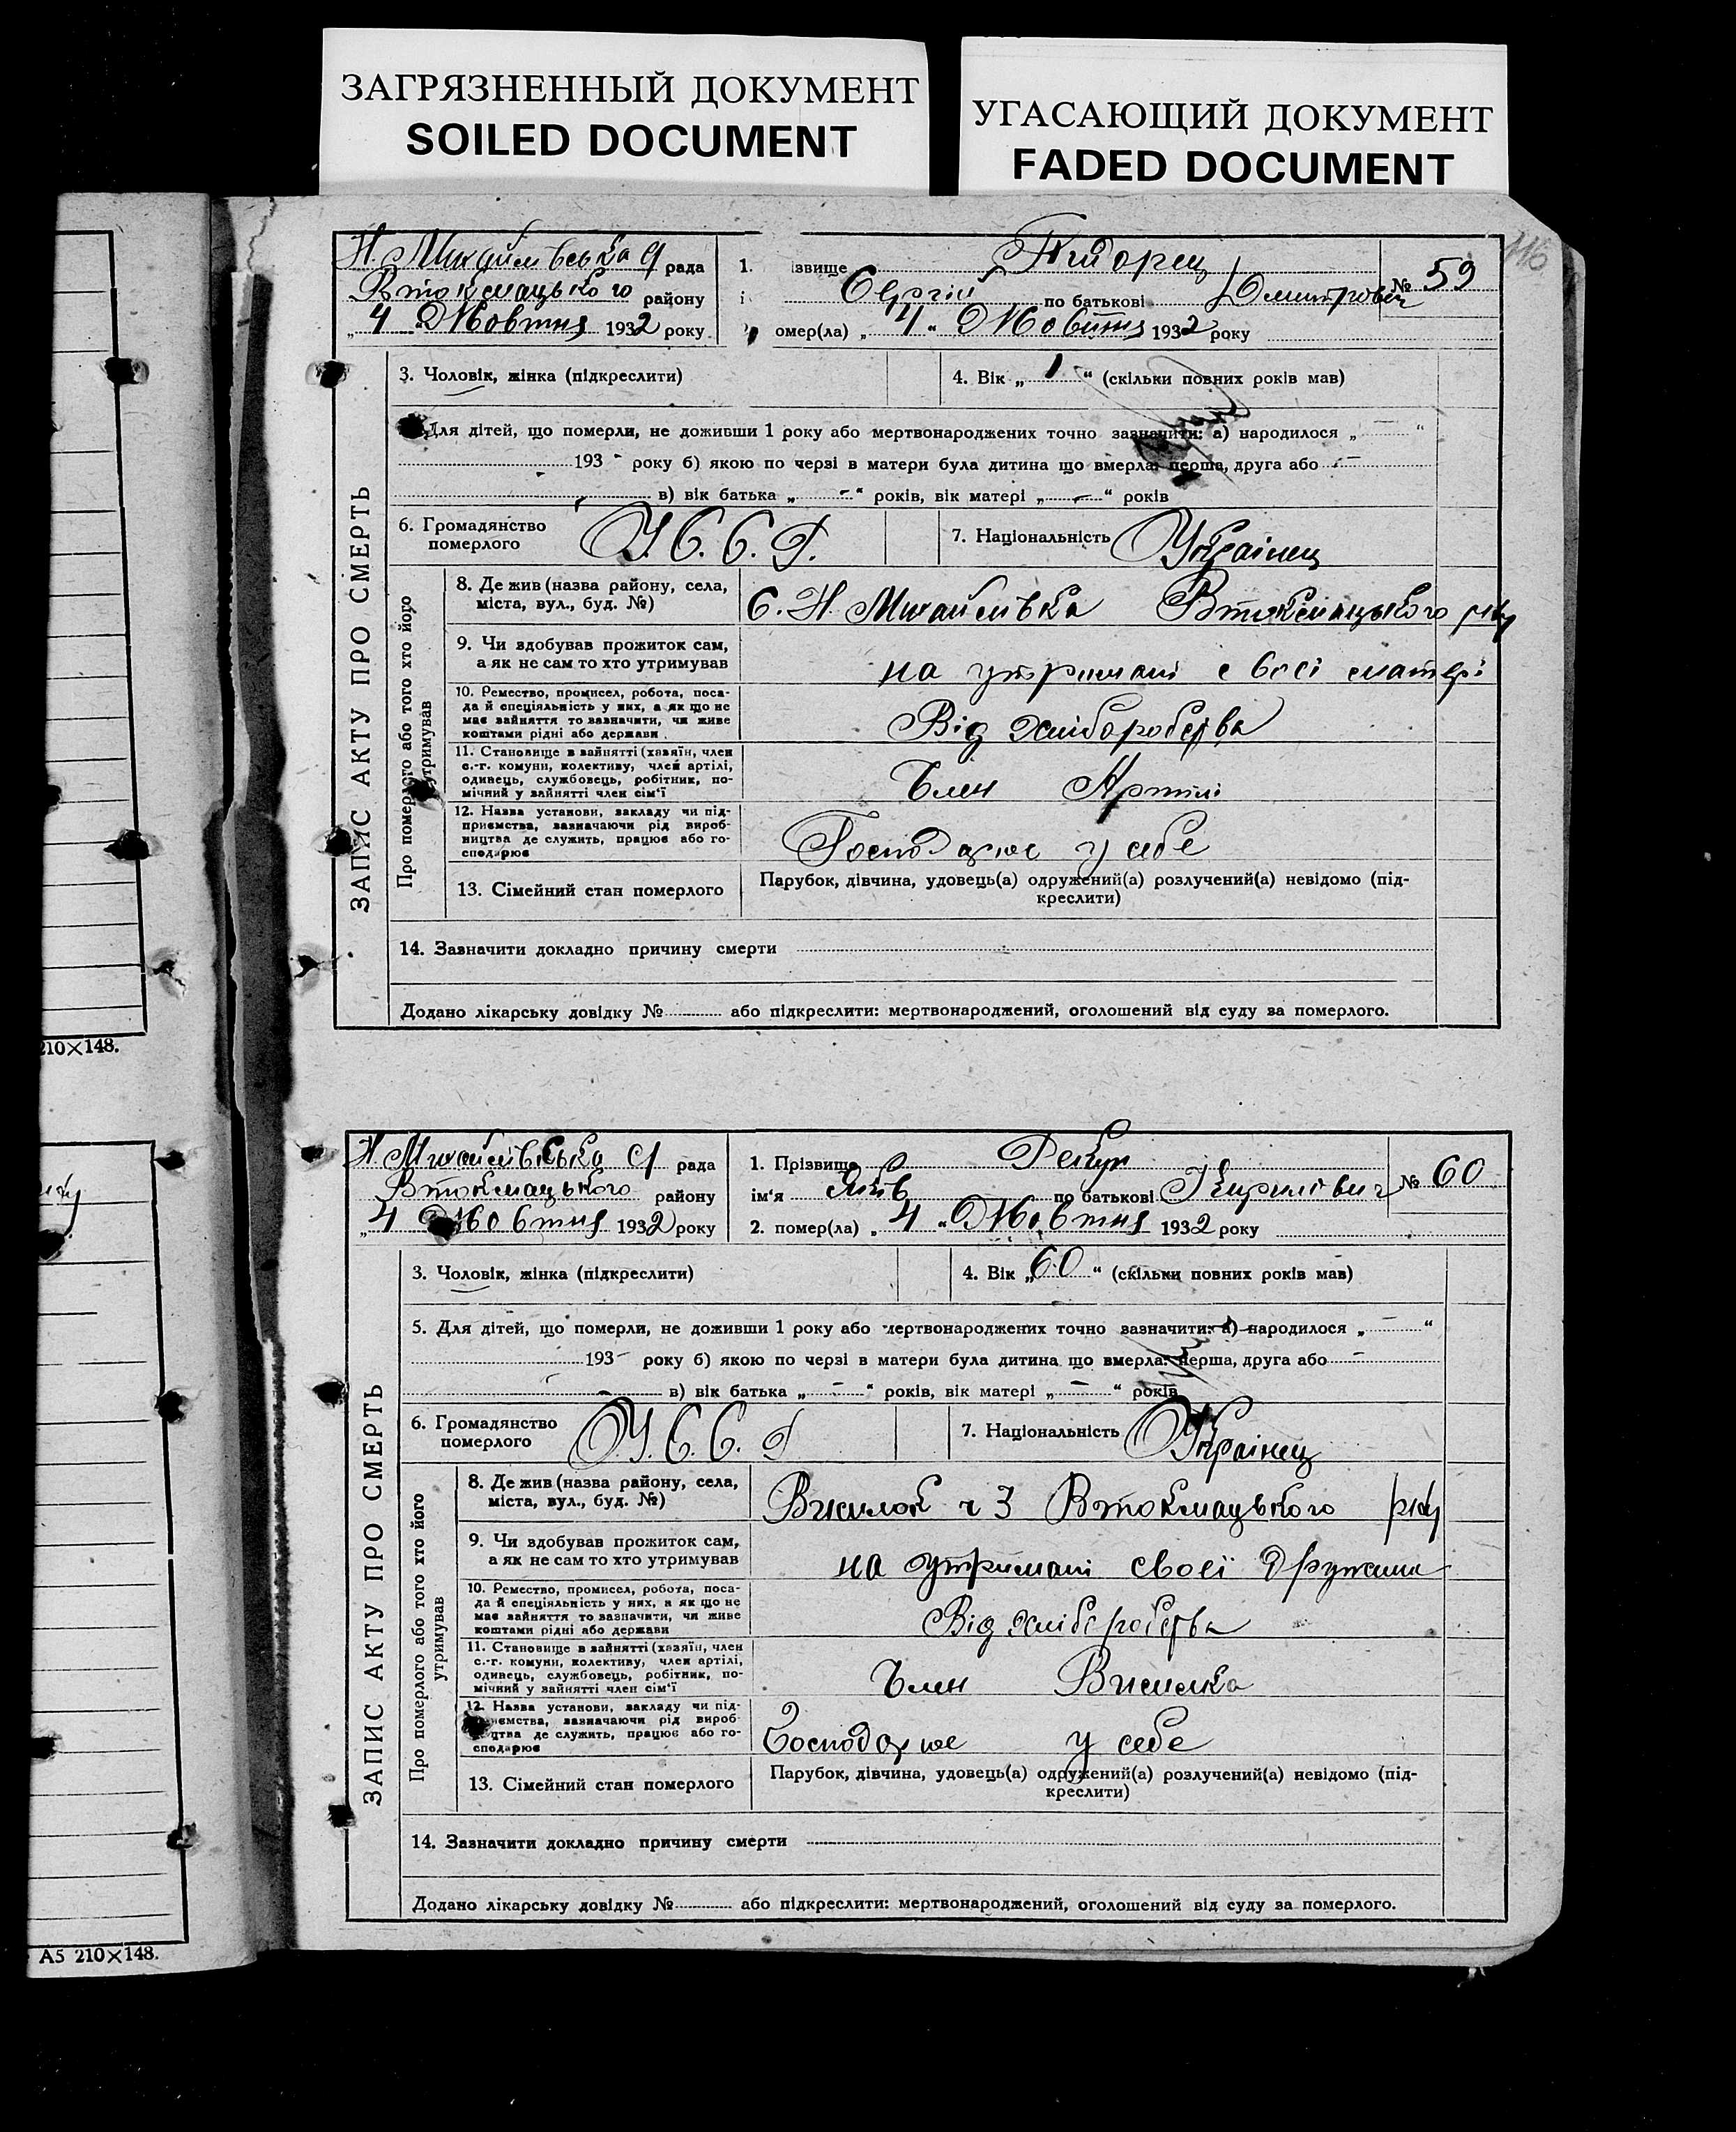 ЗАГРЯЗНЕННЫЙ ДОКУМЕНТ
SOILED DOCUMENT
УГАСАЮЩИЙ ДОКУМЕНТ
FADED DOCUMENT
116
ЗАПИС АКТУ ПРО СМЕРТЬ
Н. Михайлівська с/ рада
Втокмацького району
„4“ Жовтня 1932 року
1. ізвище
і Сергій по батькові Дмитрович
омер(ла) „4“ Жовтня 1932 року
№ 59
3. Чоловік, жінка (підкреслити)
4. Вік „1“ (скільки повних років мав)
Для дітей, що померли, не доживши 1 року або мертвонароджених точно зазначити: а) народилося „ - “
193 - року б) якою по черзі в матери була дитина що вмерла: перша, друга або -
в) вік батька „ - “ років, вік матері „ - “ років
6. Громадянство
померлого
У.С.С.Р.
7. Національність Українец
Про померлого або того хто його
утримував
8. Де жив (назва району, села,
міста, вул., буд. №)
С. Н Михайлівка Втокмацького р-ну
9. Чи здобував прожиток сам,
а як не сам то хто утримував
на утримані своєї матері
10. Ремество, промисел, робота, поса-
да й спеціяльність у них, а як що не
має зайняття то зазначити, чи живе
коштами рідні або держави.
Від хліборобства
11. Становище в зайнятті (хазяїн, член
с.-г. комуни, колективу, член артілі,
одинець, службовець, робітник, по-
мічний у зайнятті член сім'ї
Член Артілі
12. Назва установи, закладу чи під-
приємства, зазначаючи рід вироб-
ництва де служить, працює або го-
сподарює
Господарює у себе
13. Сімейний стан померлого
Парубок, дівчина, удовець(а) одружений(а) розлучений(а) невідомо (під-
креслити)
14. Зазначити докладно причину смерти
Додано лікарську довідку № або підкреслити: мертвонароджений, оголошений від суду за померлого.
210×148.
ЗАПИС АКТУ ПРО СМЕРТЬ
Н Михайлівська с/ рада
Втокмацького району
„4 Жовтня 1932 року
1. Прізвище
ім'я Яків по батькові Кирилович
2. помер(ла) „4“ Жовтня 1932 року
№ 60
3. Чоловік, жінка (підкреслити)
4. Вік „60“ (скільки повних років мав)
5. Для дітей, що померли, не доживши 1 року або мертвонароджених точно зазначити: а) народилося „ - “
193 - року б) якою по черзі в матери була дитина що вмерла: перша, друга або -
в) вік батька „ - “ років, вік матері „ - “ років
6. Громадянство
померлого
У.С.С.Р
7. Національність Українец
Про померлого або того хто його
утримував
8. Де жив (назва району, села,
міста, вул., буд. №)
Висилок ч 3 Втокмацького р-ну
9. Чи здобував прожиток сам,
а як не сам то хто утримував
на утримані своєї дружини
10. Ремество, промисел, робота, поса-
да й спеціяльність у них, а як що не
має зайняття то зазначити, чи живе
коштами рідні або держави
Від хліборобства
11. Становище в зайнятті (хазяїн, член
с.-г. комуни, колективу, член артілі,
одинець, службовець, робітник, по-
мічний у зайнятті член сім'ї
Член Висилка
12. Назва установи, закладу чи під-
ємства, зазначаючи рід вироб-
цтва де служить, працює або го-
сподарює
Господарює у себе
13. Сімейний стан померлого
Парубок, дівчина, удовець(а) одружений(а) розлучений(а) невідомо (під-
креслити)
14. Зазначити докладно причину смерти
Додано лікарську довідку № або підкреслити: мертвонароджений, оголошений від суду за померлого.
А5 210×148.